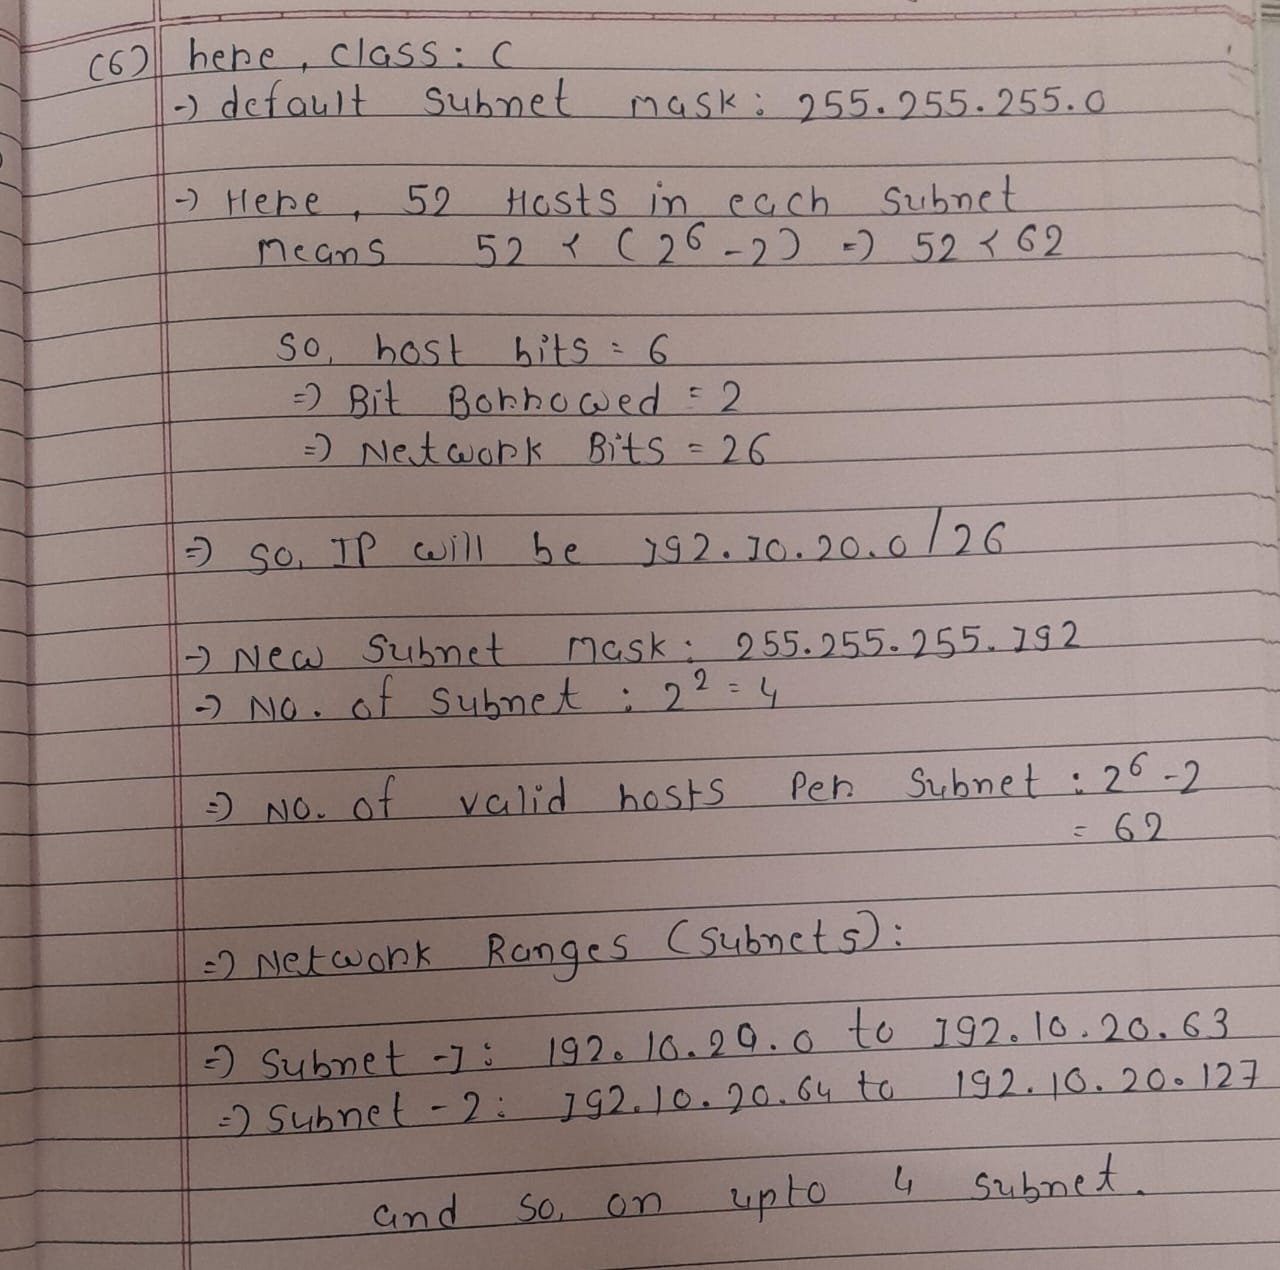 (6) here, class: C
→ default subnet mask: 255.255.255.0
→ Here, 52 Hosts in each subnet
Means 52 < (2⁶-2) ⇒ 52 < 62
So, host bits = 6
⇒ Bit Borrowed = 2
⇒ Network Bits = 26
⇒ So, IP will be 192.10.20.0/26
→ New Subnet Mask: 255.255.255.192
→ No. of Subnet : 2² = 4
⇒ No. of valid hosts Per Subnet : 2⁶-2
= 62
⇒ Network Ranges (Subnets):
⇒ Subnet -1: 192.10.20.0 to 192.10.20.63
⇒ Subnet -2: 192.10.20.64 to 192.10.20.127
and so, on upto 4 subnet.